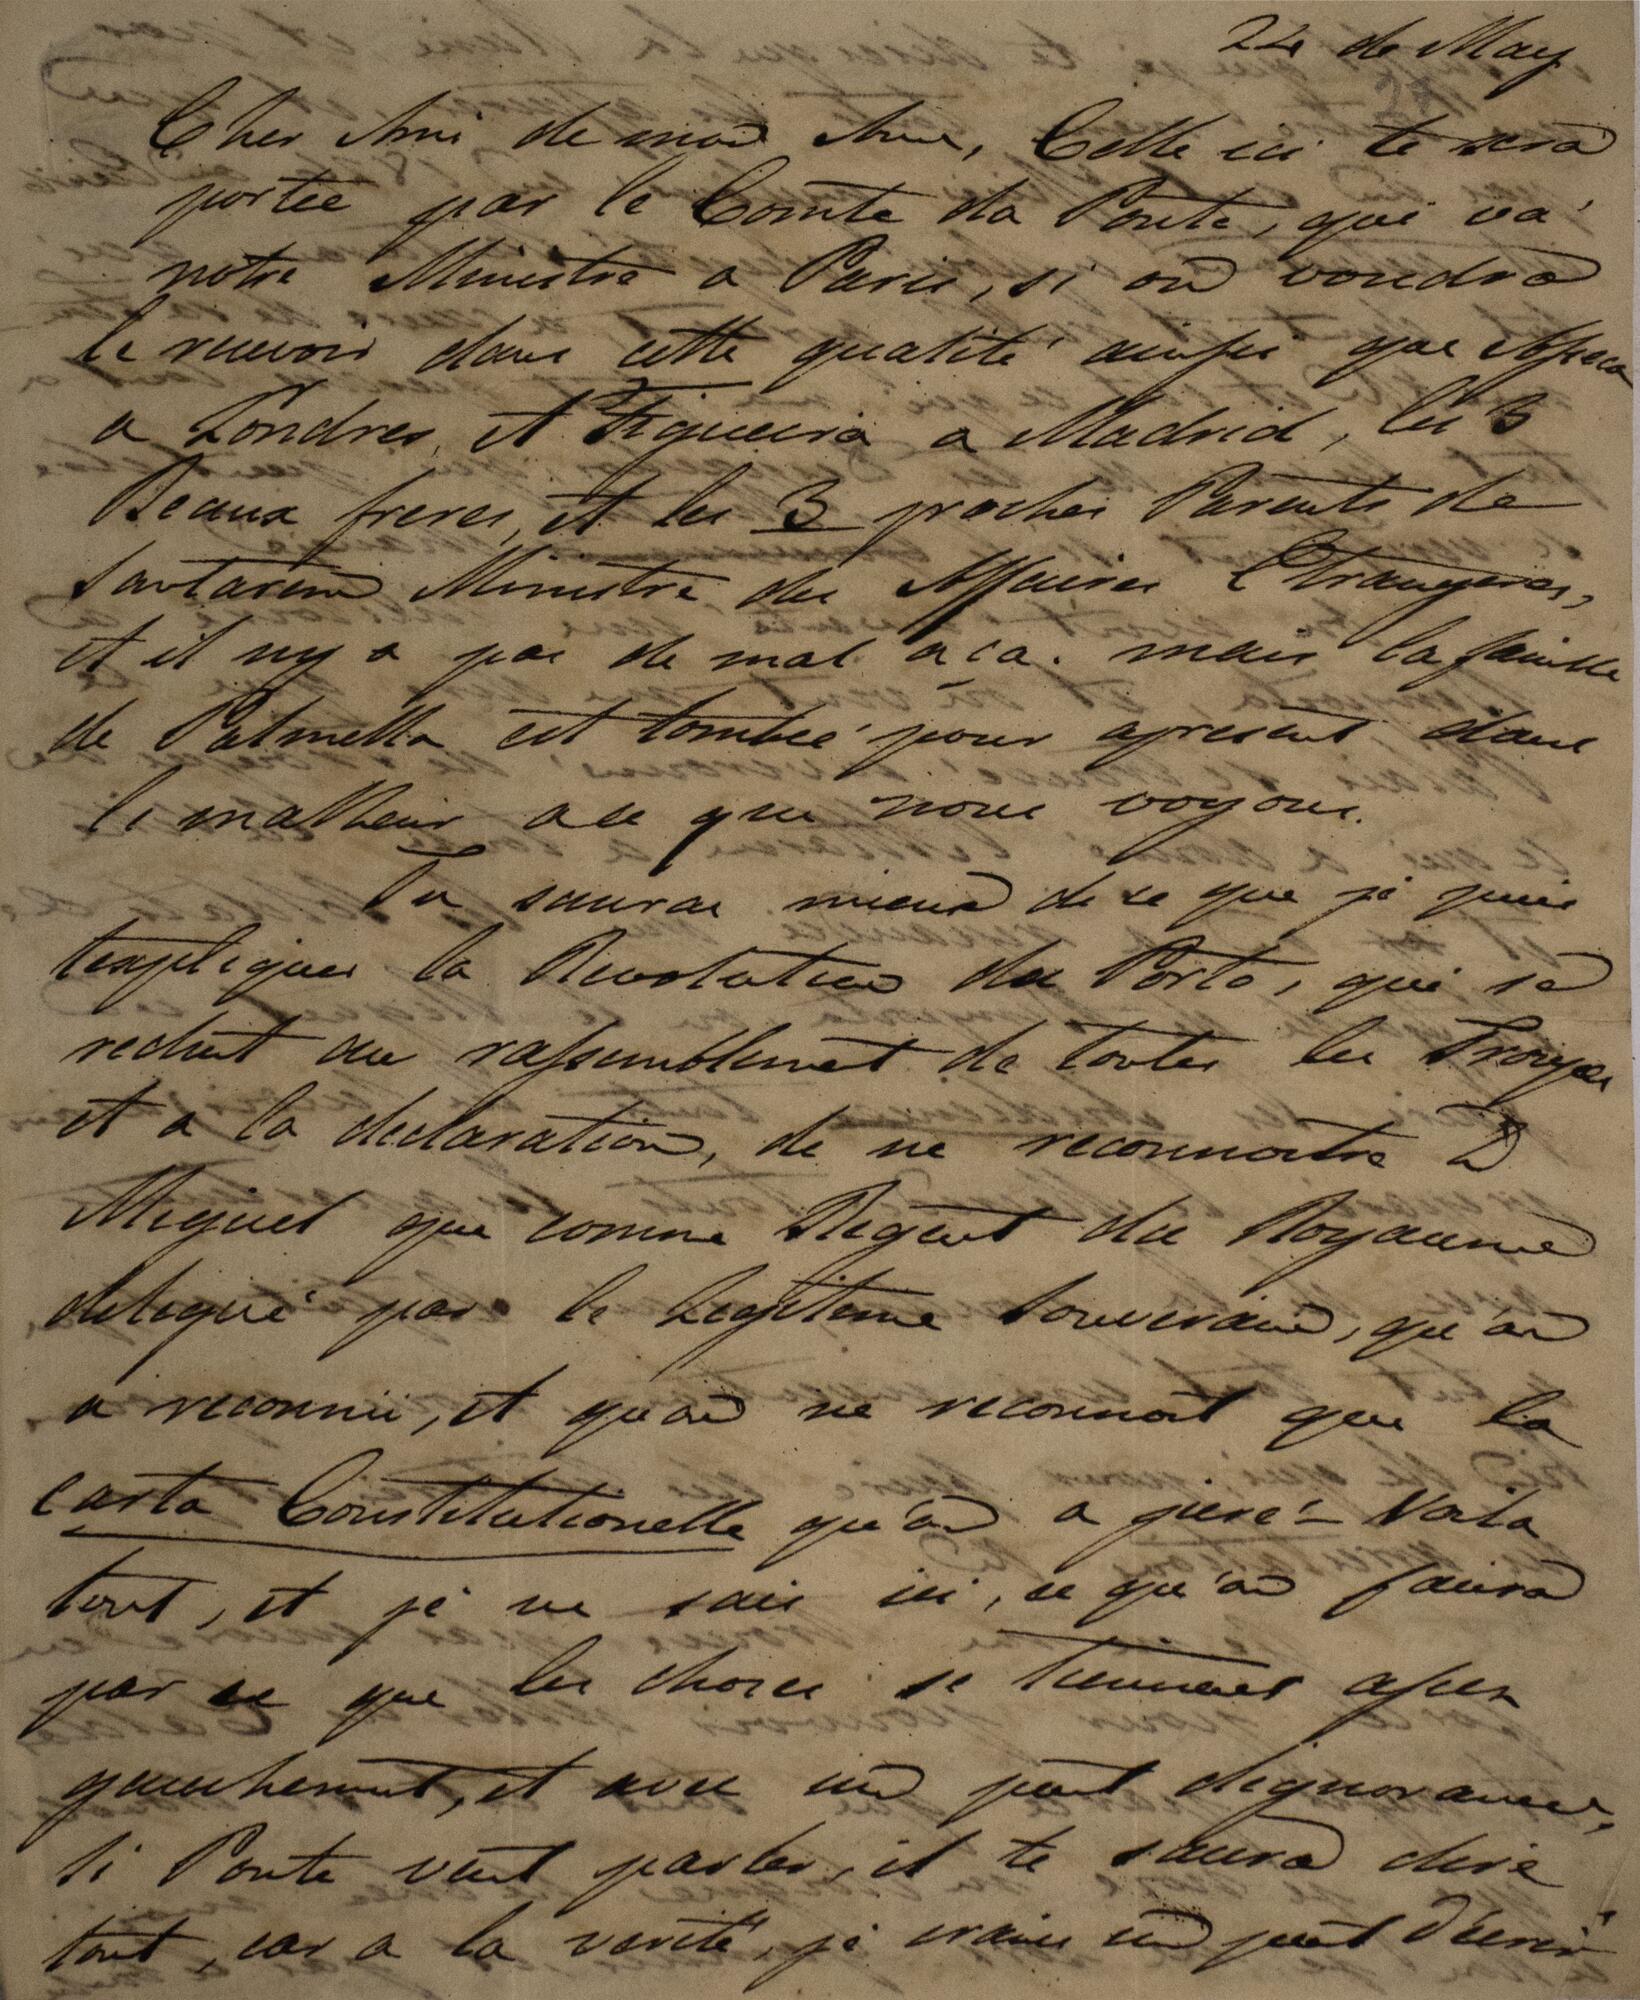 24 de May
28
Cher Ami de mon Ame, Celle ici te sera
portée par le Comte da Ponte, qui va
notre Ministre a Paris, si on voudra
le recevoir dans cette qualité ainsi que Asseca
a Londres, et Figueira a Madrid, les 3
Beaux freres, et les 3 proches Parents de
Santarem Ministre des Affaires Etrangeres,
et il ny a pas de mal a ca. mais la famille
de Palmella est tombée pour apresent dans
le malheur a ce que nous voyons.
Tu sauras mieux de ce que je puis
texpliquer la Revolution du Porto, qui se
reduit au rassemblement de toutes les Troupes
et a la declaration, de ne reconnoitre D
Miguel que comme Regent du Royaume
delegué par le Legitime Souverain, qu'on
a reconnu, et qu'on ne reconnoit que la
carta Constitutionelle qu'on a juré - Voila
tout, et je ne sais ici, ce qu'on faira
par ce que les choses se tiennent assez
gauchement, et avec un peut dignorance,
si Ponte veut parler, il te saura dire
tout, car a la verité, je crains un peut d'ecrir